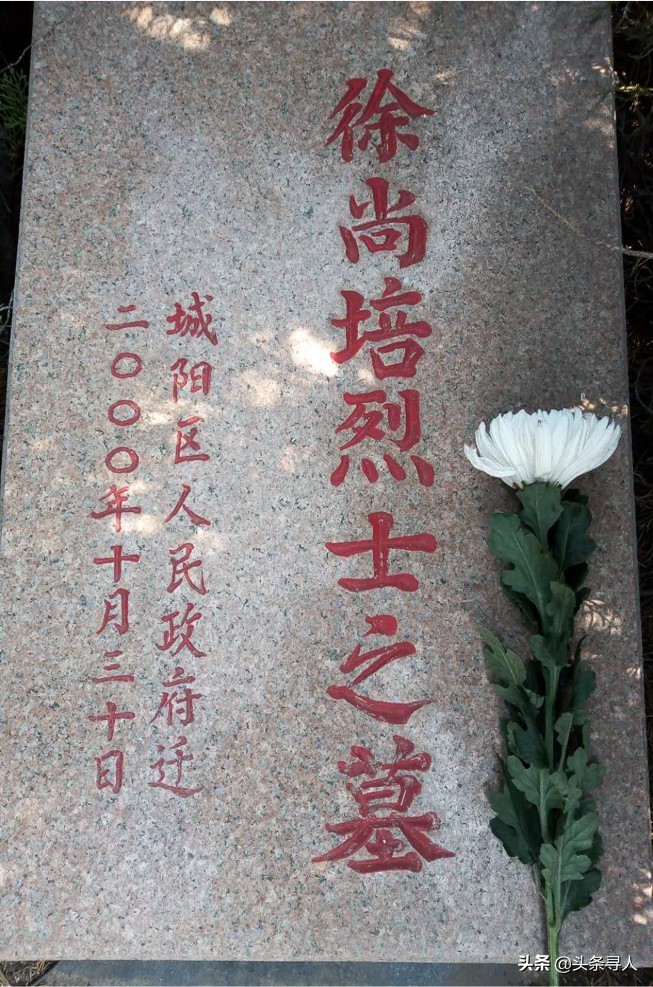 徐尚培烈士之墓
城阳区人民政府迁
二〇〇〇年十月三十日
头条 @头条寻人